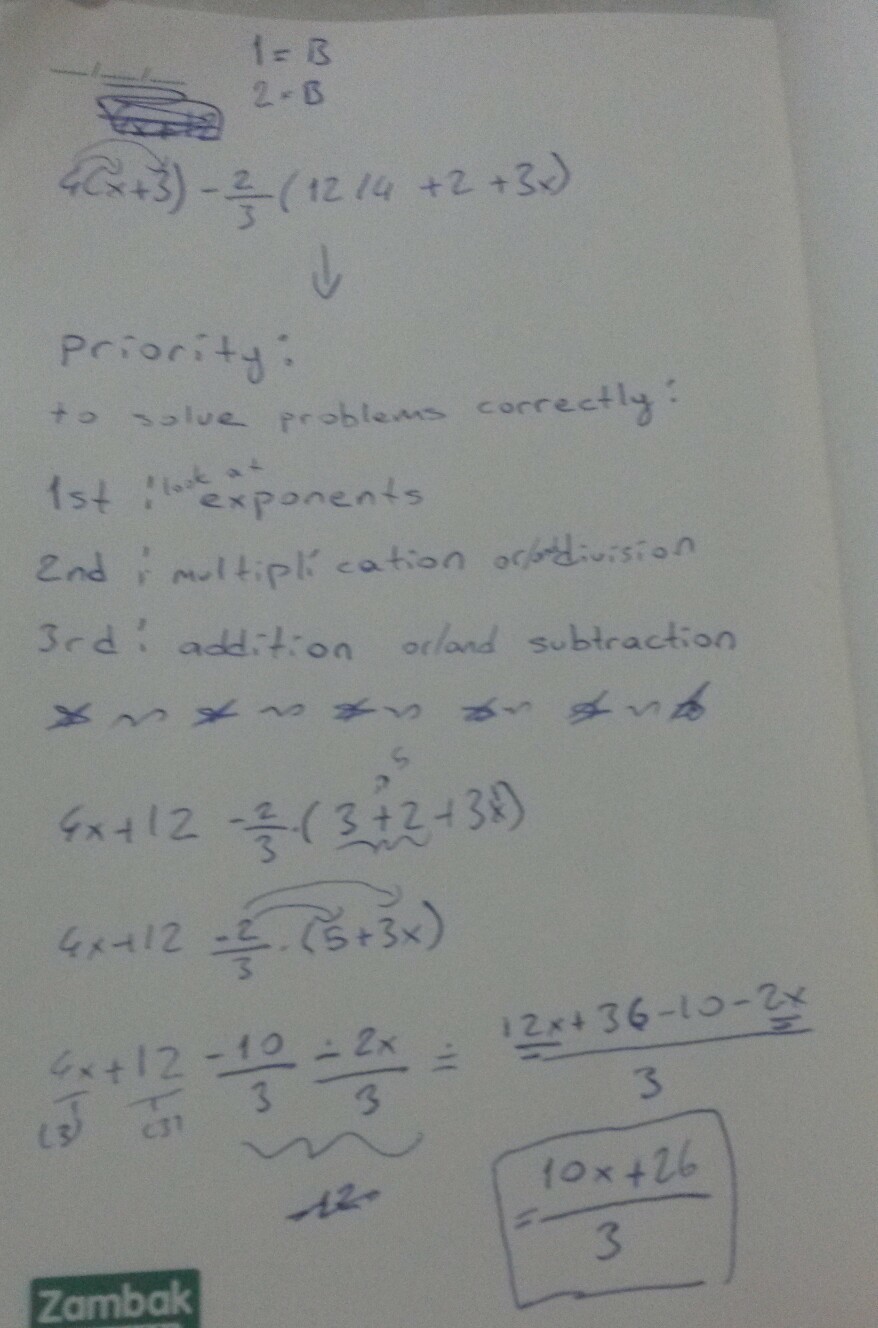 1 = B
2 = B
4(x+3) - 2/3 (12/4 +2 +3x)
↓
Priority:
to solve problems correctly:
1st : look at exponents
2nd : multiplication or/and division
3rd : addition or/and subtraction
5
4x+12 -2/3 ·(3+2+3x)
4x+12 -2/3 · (5+3x)
4x+12 -10/3 - 2x/3 = 12x+36-10-2x/3
(3) (3)
= 10x+26/3
Zambak